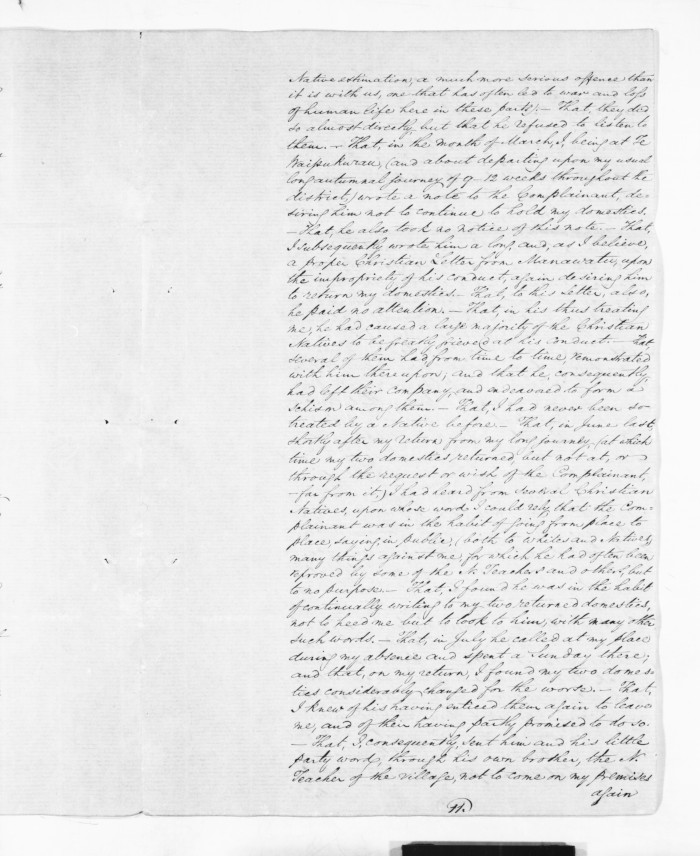 Native estimation, a much more serious offence than
it is with us, one that has often led to war and loss
of human life here in these parts; — That, they did
so almost directly, but that he refused to listen to
them. — That, in the month of March, I, being at Te
Waipukurau, (and about departing upon my usual
long autumnal journey of 9–12 weeks throughout the
district,) wrote a note to the Complainant, de-
siring him not to continue to hold my domestics.
— That, he also took no notice of this note. — That,
I subsequently wrote him a long and, as I believe,
a proper Christian Letter from Manawatu, upon
the impropriety of his conduct, again desiring him
to return my domestics. — That, to this Letter, also,
he paid no attention. — That, in his thus treating
me, he had caused a large majority of the Christian
Natives to be greatly grieved at his conduct — that
several of them had, from time to time, remonstrated
with him thereupon; and that he, consequently,
had left their company, and endeavored to form a
schism among them. — That, I had never been so
treated by a Native before. — That, in June last,
shortly after my return from my long journey, (at which
time my two domestics returned, but not at, or
through the request or wish of the Complainant,
— far from it,) I had heard from several Christian
Natives, upon whose word I could rely, that the Com-
plainant was in the habit of going from place to
place, saying, in public, (both to whites and Natives,)
many things against me, for which he had often been
reproved by some of the N. Teachers and others, but
to no purpose. — That, I found he was in the habit
of continually writing to my two returned domestics,
not to heed me but to look to him, with many other
such words. — That, in July he called at my place
during my absence and spent a Sunday there;
and that, on my return, I found my two domes-
tics considerably changed for the worse. — That,
I knew of his having enticed them again to leave
me, and of their having partly promised to do so.
— That, I, consequently, sent him and his little
party word, through his own brother, the N.
Teacher of the village, not to come on my premises
again
11.